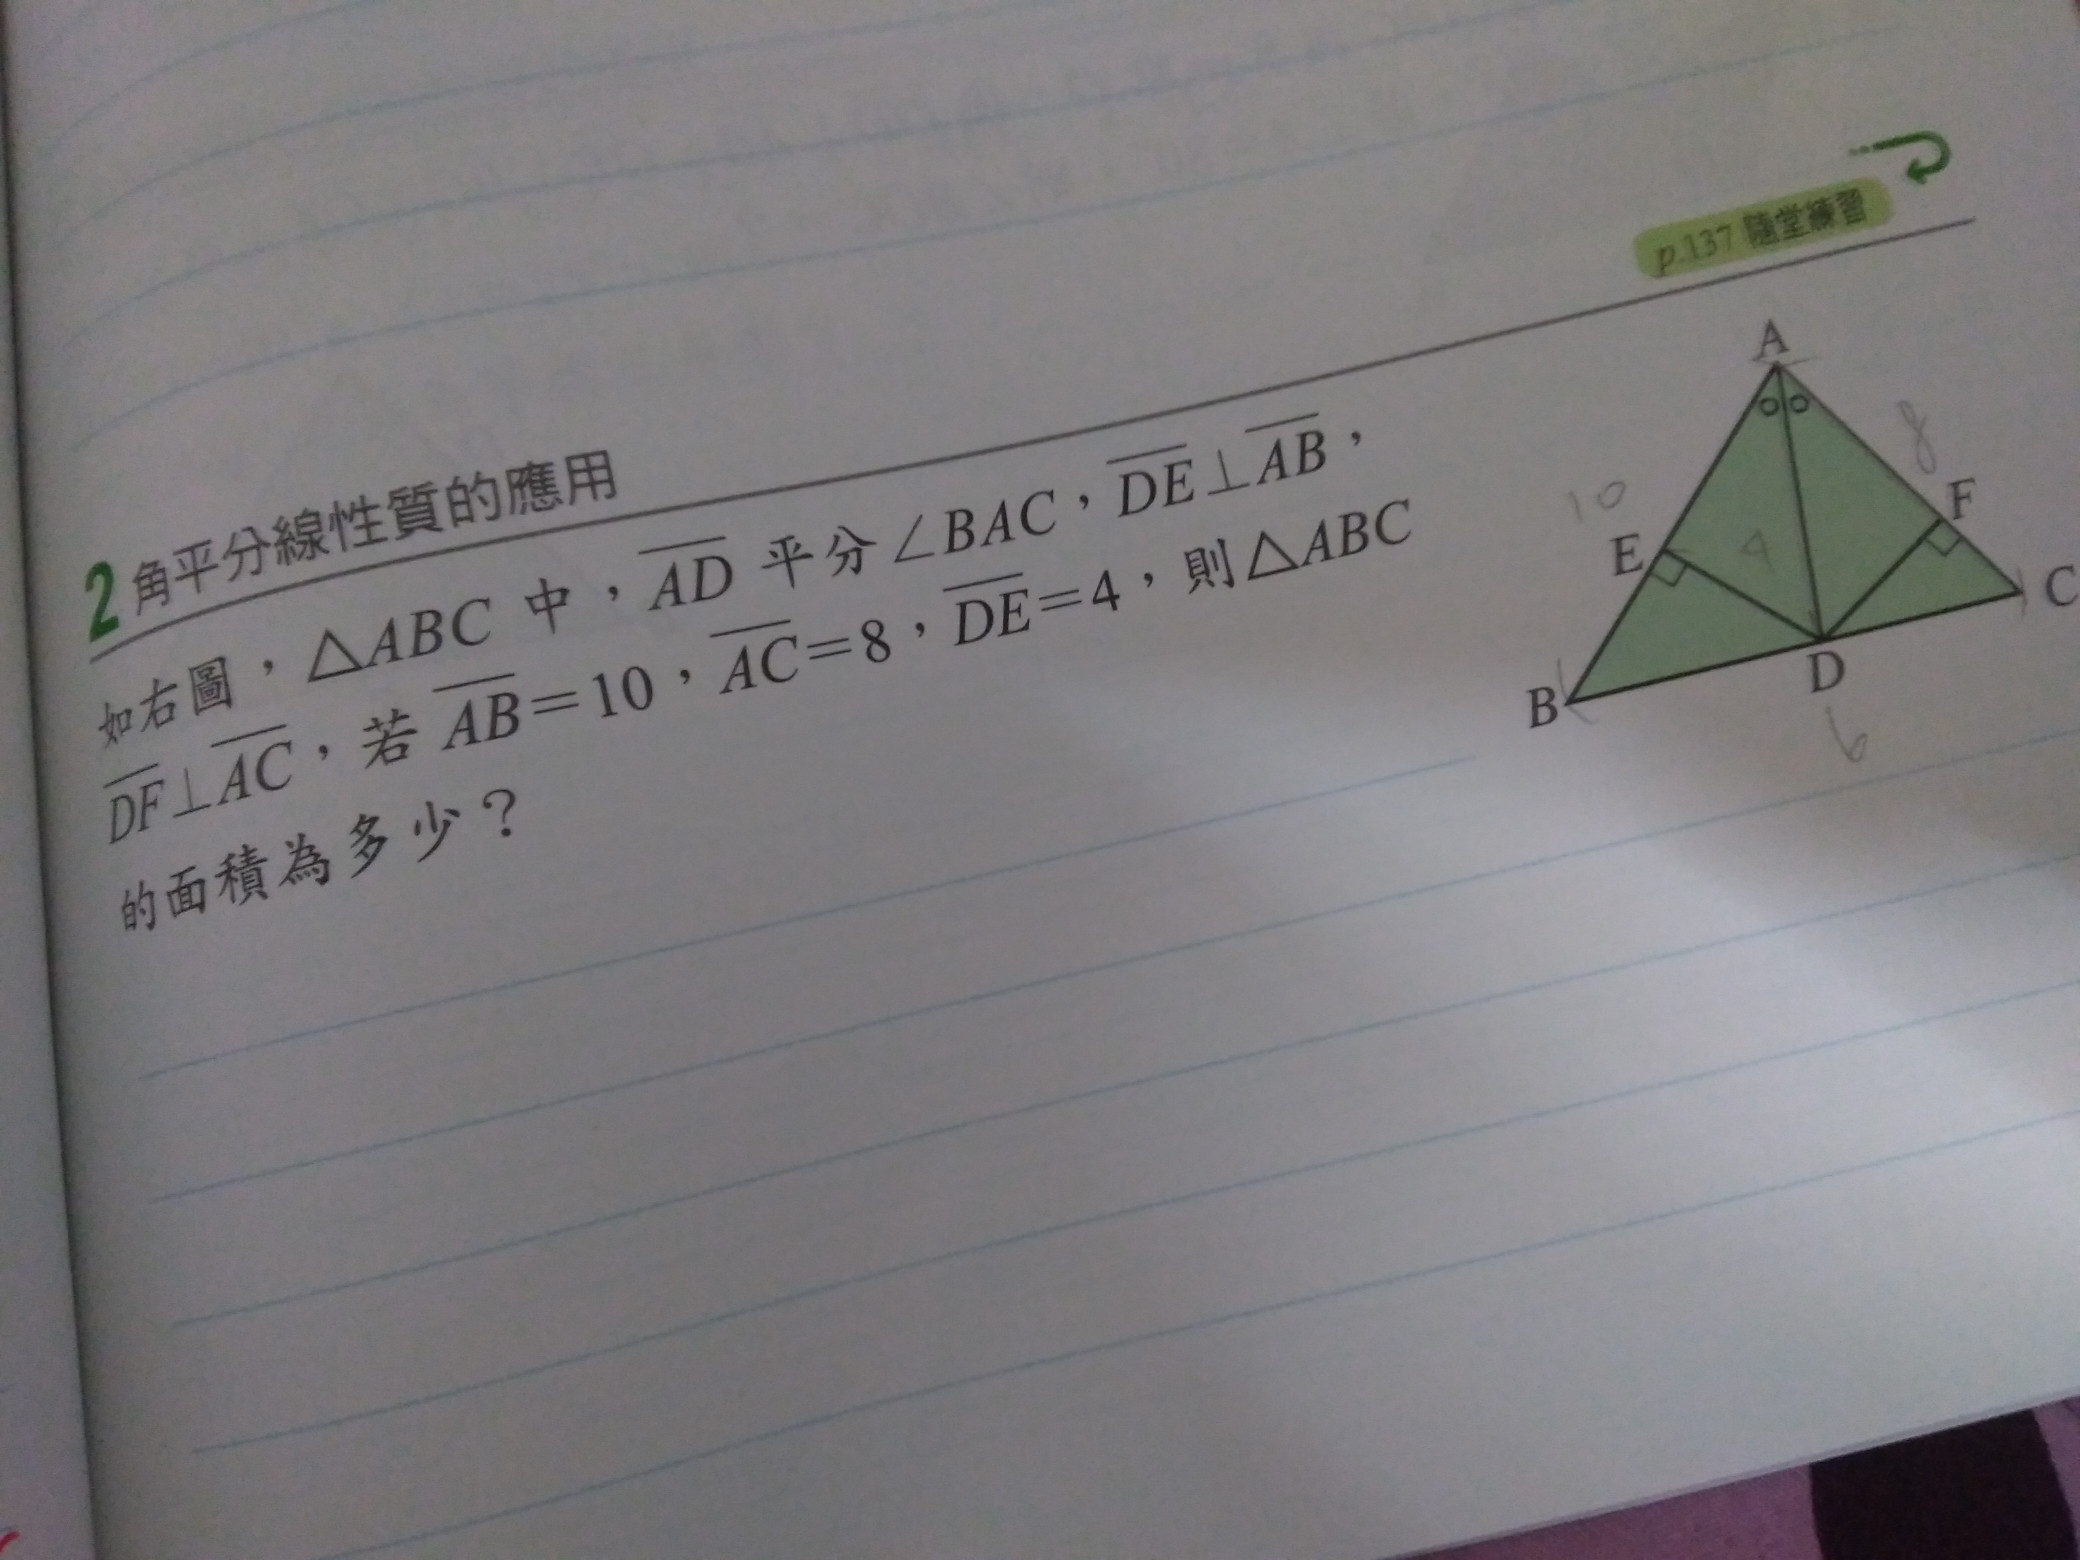 p.137 隨堂練習
2 角平分線性質的應用
如右圖，△ABC 中，AD 平分∠BAC，DE⊥AB，
DF⊥AC，若 AB=10，AC=8，DE=4，則△ABC
的面積為多少？
A
8
10
F
E
4
C
D
B
6